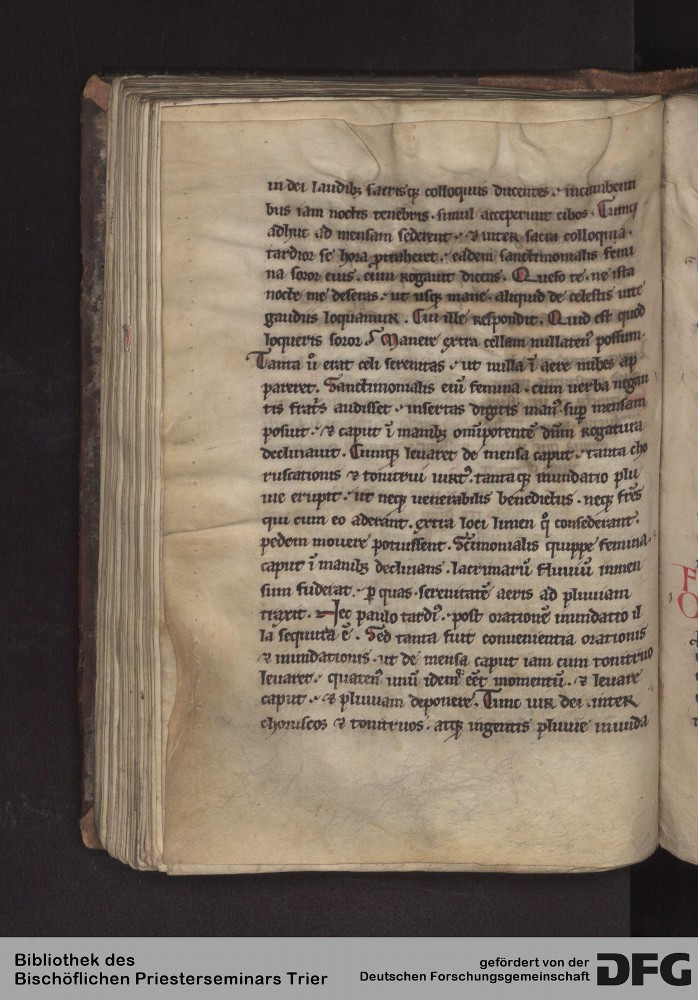 in dei laudibꝫ sacrisqꝫ colloquiis ducentes. incumbenti
bus iam noctis tenebris. simul acceperunt cibos. Cumqꝫ
adhuc ad mensam sederent. ⁊ inter sacra colloquia.
tardior se hora protraheret. eadem sanctimonialis femi
na soror eius. eum rogauit dicens. Queso te. ne ista
nocte me deseras. ut usqꝫ mane. aliquid de celestis uite
gaudiis loquamur. Cui ille respondit. Quid est quod
loqueris soror? Manere extra cellam nullatenꝰ possum.
Tanta ů erat celi serenitas. ut nulla ī aere nubes ap
pareret. Sanctimonialis eiũ femina. cum uerba negan
tis fratrĩs audisset. insertas digitis manꝰ sup̄ mensam
posuit. ⁊ caput ī manibꝫ omīpotentē dñm rogatura
declinauit. Cumqꝫ leuaret de mensa caput. tanta cho
ruscationis ⁊ tonitrui uirtꝰ. tantaqꝫ inundatio plu
uie erupit. ut neqꝫ uenerabilis benedictus. neqꝫ frēs
qui cum eo aderant. extra loci limen q̊ consederant.
pedem mouere potuissent. Sc̄imonialis quippe femina.
caput ī manibꝫ declinans. lacrimarū fluuiū inmen
sum fuderat. ꝑ quas serenitatē aeris ad pluuiam
traxit. Nec paulo tardiꝰ. post orationē inundatio il
la sequuta ē. Sed tanta fuit conuenientia orationis
⁊ inundationis. ut de mensa caput iam cum tonitruo
leuaret. quatenꝰ unū idemqꝫ eēt momentū. ⁊ leuare
caput. ⁊ pluuiam deponere. Tunc uir dei. inter
choruscos ⁊ tonitruos. atqꝫ ingentis pluuie inunda
F
Bibliothek des
Bischöflichen Priesterseminars Trier
gefördert von der
Deutschen Forschungsgemeinschaft DFG